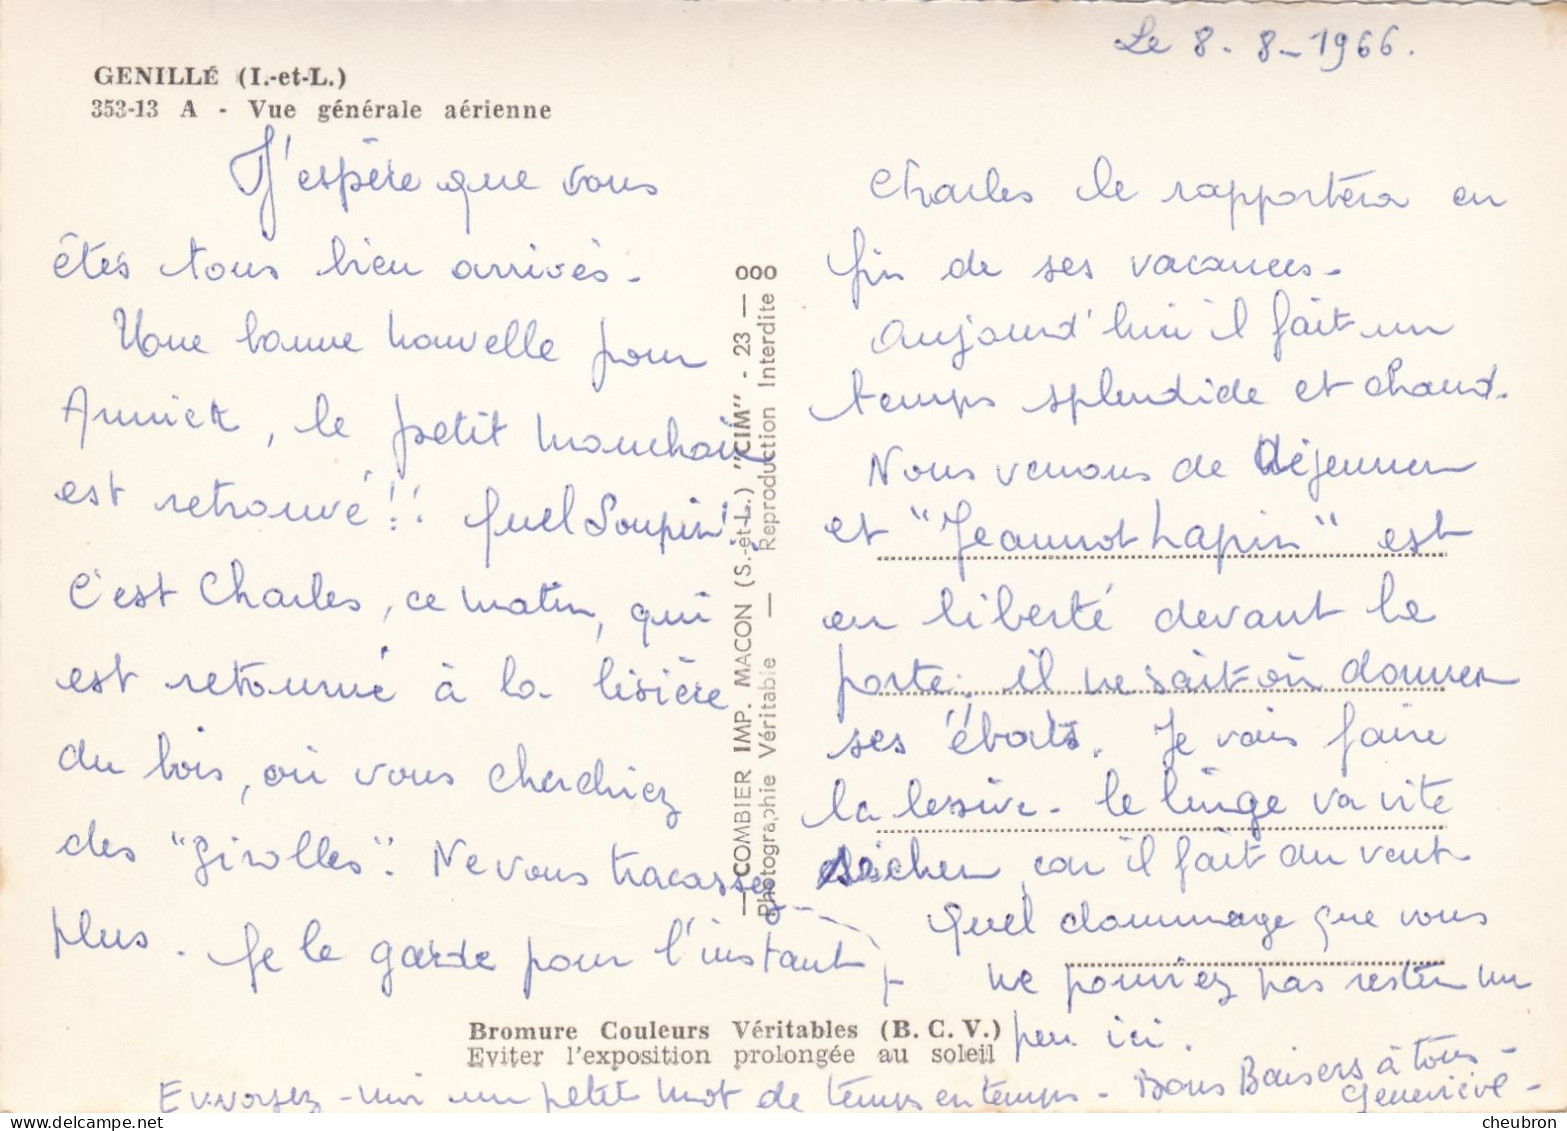 Le 8-8-1966.
GENILLÉ (I.-et-L.)
353-13 A - Vue générale aérienne
J'espère que vous
êtes tous bien arrivés.
Une bonne nouvelle pour
Annick, le petit mouchoir
est retrouvé!! Quel Soupir!!
C'est Charles, ce matin, qui
est retourné à la lisière
du bois, où vous cherchiez
des "girolles". Ne vous tracassez
plus. Je le garde pour l'instant
COMBIER IMP. MACON (S.-et-L.) "CIM" - 23 — 000
Photographie Véritable — Reproduction Interdite
Charles le rapportera en
fin de ses vacances.
Aujourd'hui il fait un
temps splendide et chaud.
Nous venons de déjeuner
et "Jeannot Lapin" est
en liberté devant la
porte, il ne sait où donner
ses ébats. Je vais faire
la lessive. le linge va vite
sécher car il fait du vent
Quel dommage que vous
ne pouviez pas rester un
peu ici.
Bromure Couleurs Véritables (B. C. V.)
Eviter l'exposition prolongée au soleil
Envoyez-moi un petit mot de temps en temps - Bons Baisers à tous -
Geneviève -
www.delcampe.net
cheubron